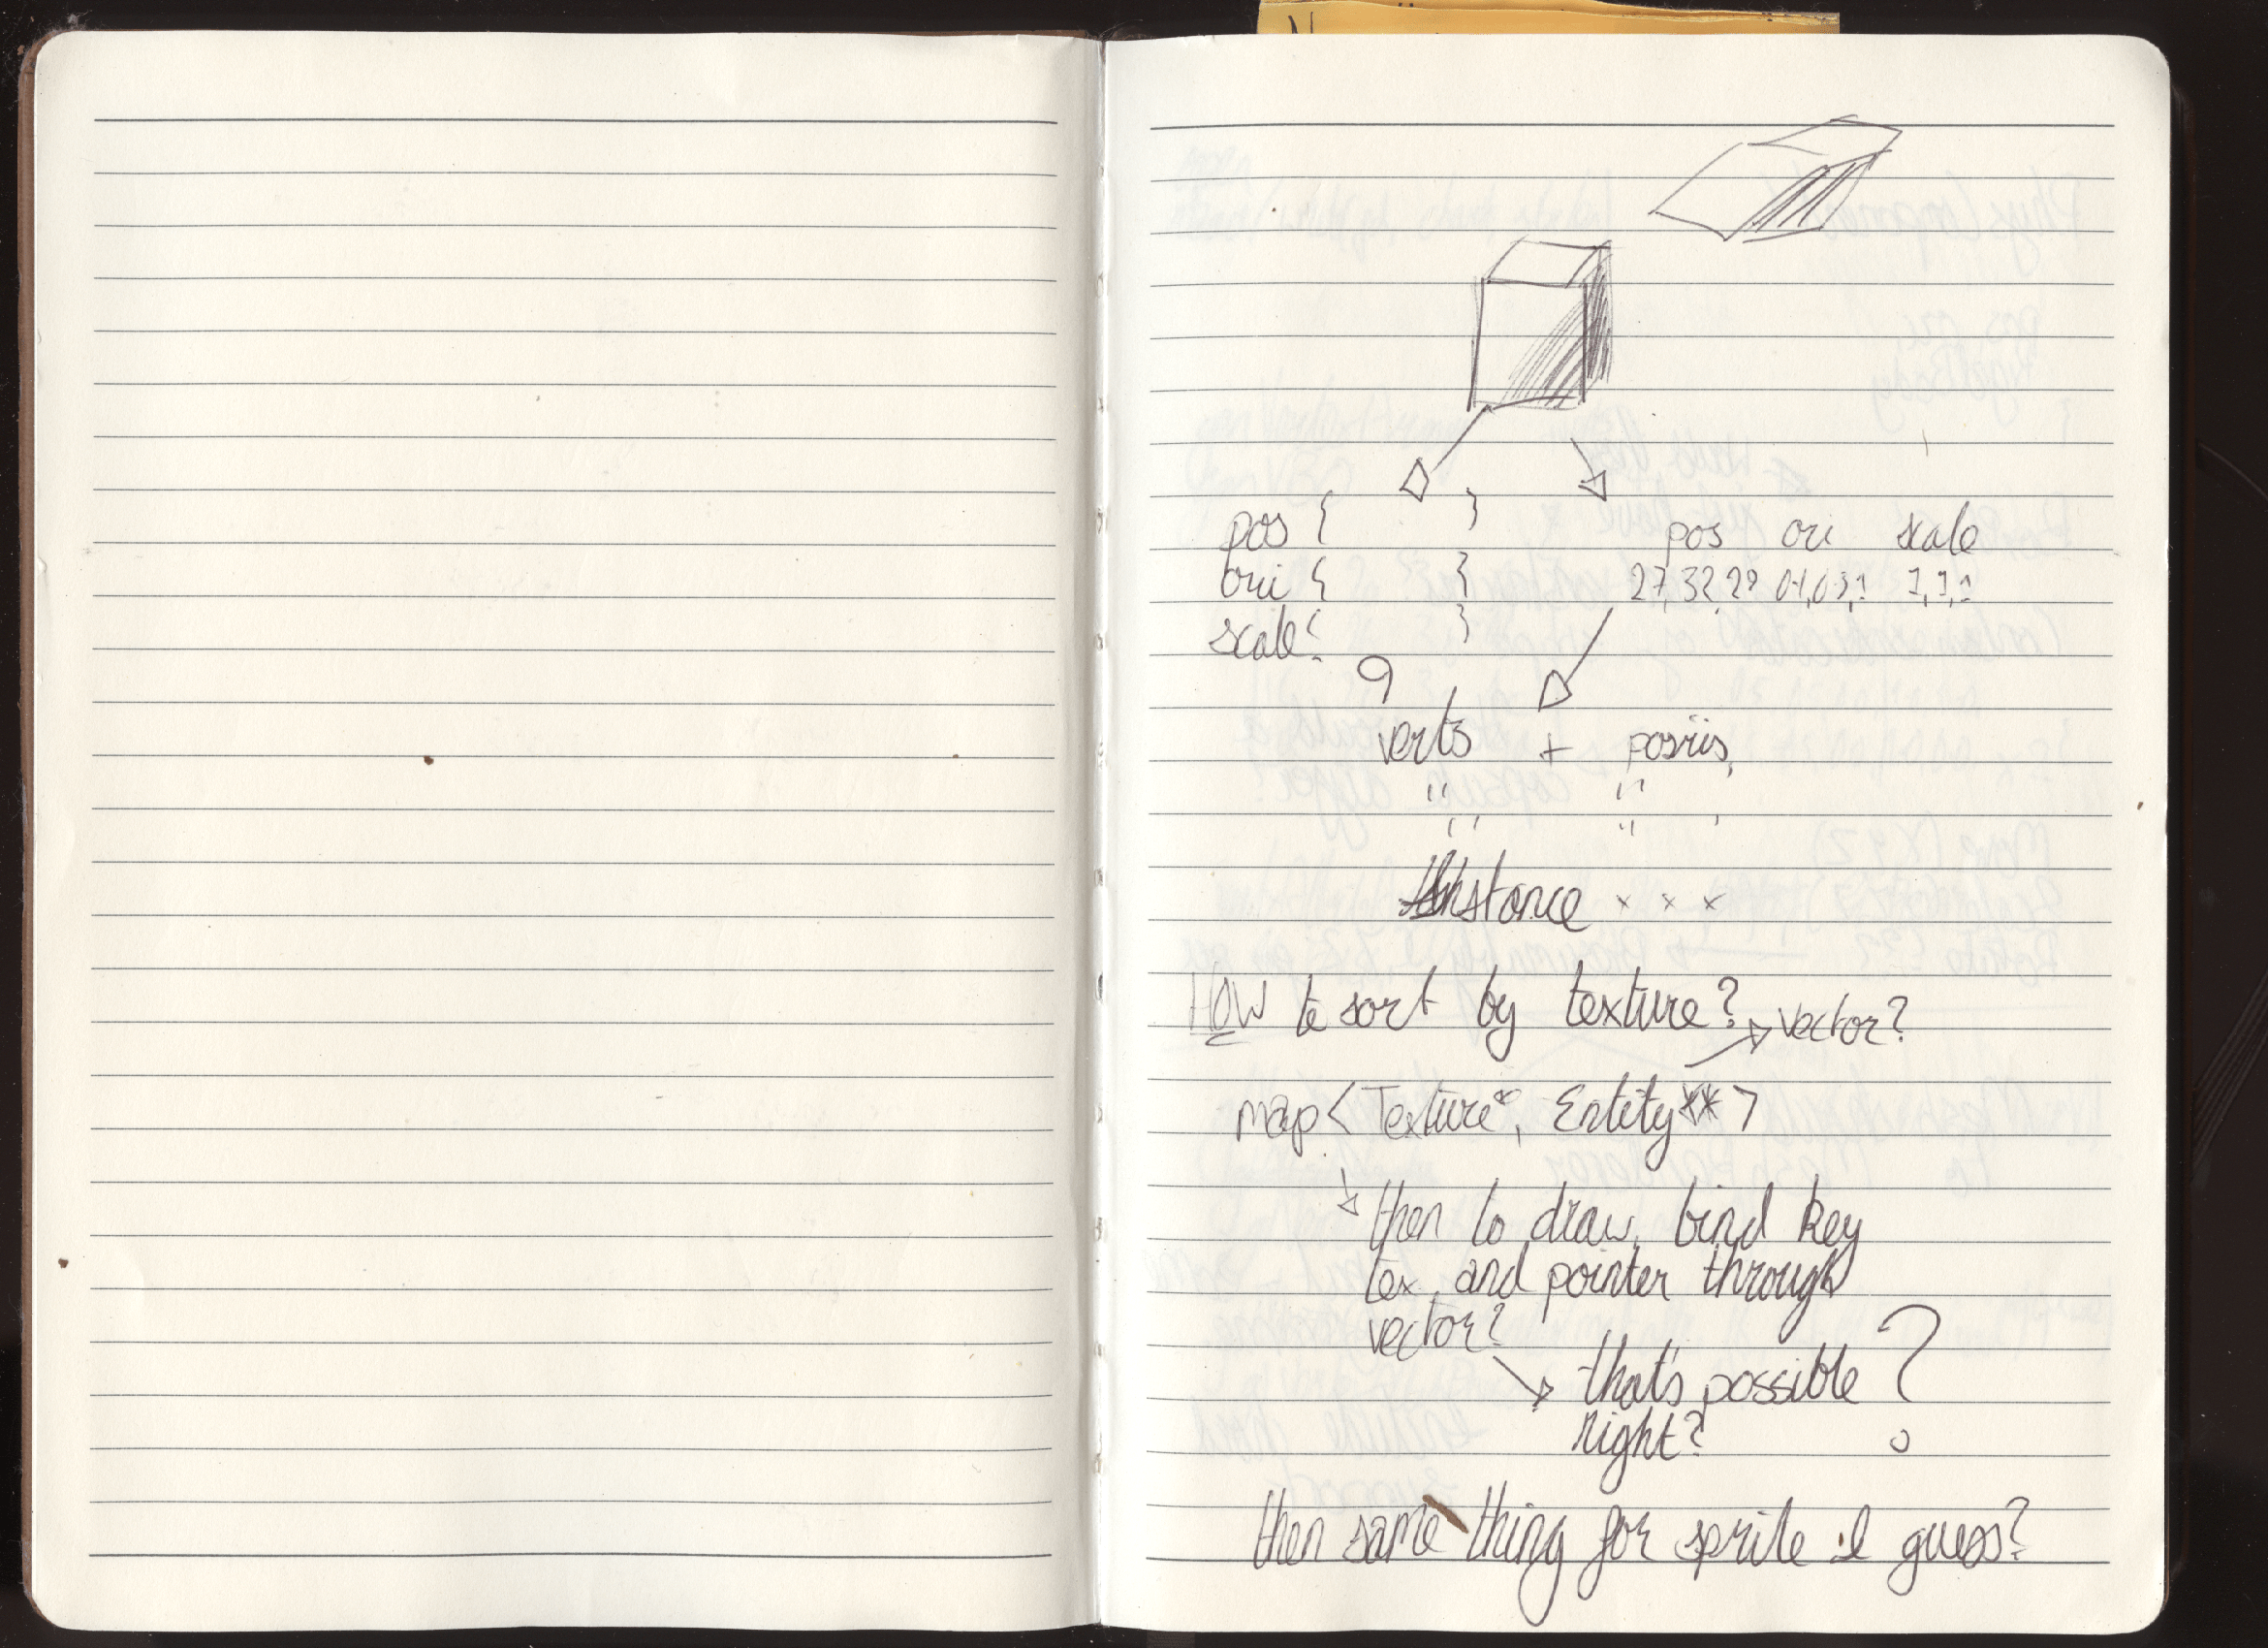 pos { }
ori { }
scale { }
pos ori scale
27, 32, 29 1, 1, 1
verts + posris,
" "
" " '
Instance x x x
How to sort by texture?
→ vector?
map < Texture*, Entity** >
then to draw, bind key
tex and pointer through
vector?
that's possible ?
right?
then same thing for sprite I guess?